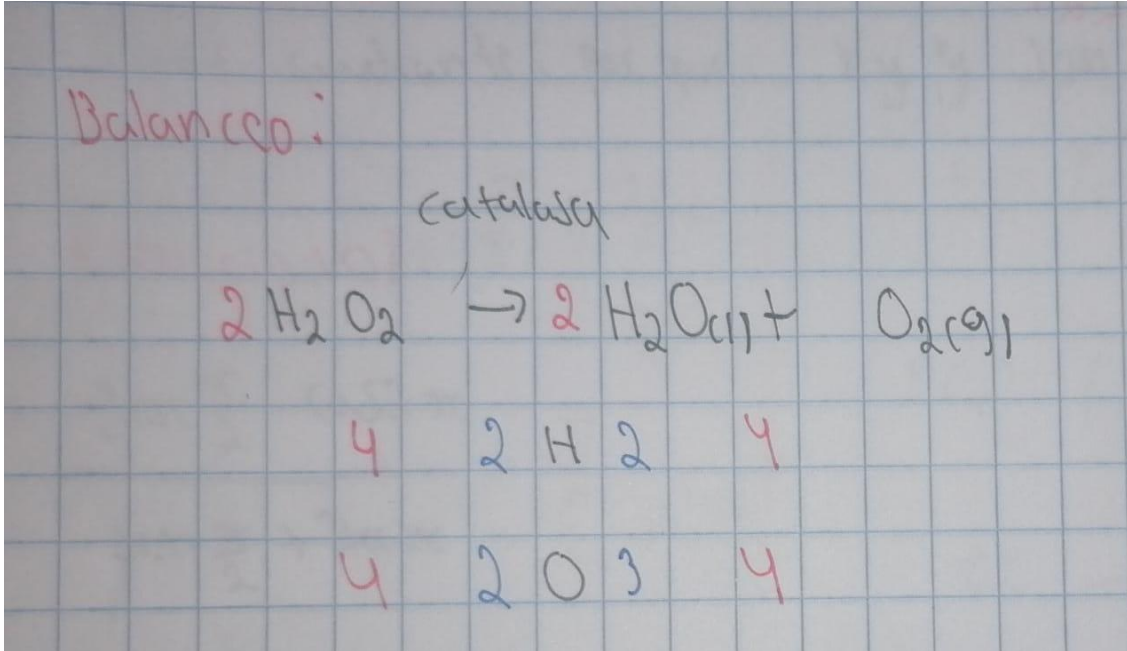 Balanceo:
catalasa
2 H₂ O₂ → 2 H₂O(l) + O₂(g)
4 2 H 2 4
4 2 O 3 4